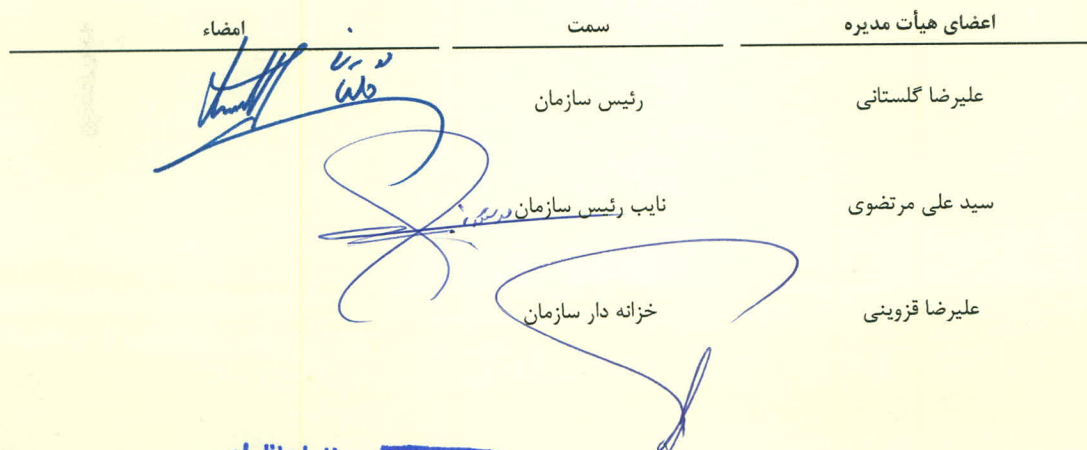 اعضای هیأت مدیره سمت امضاء
علیرضا گلستانی رئیس سازمان
سید علی مرتضوی نایب رئیس سازمان
علیرضا قزوینی خزانه دار سازمان